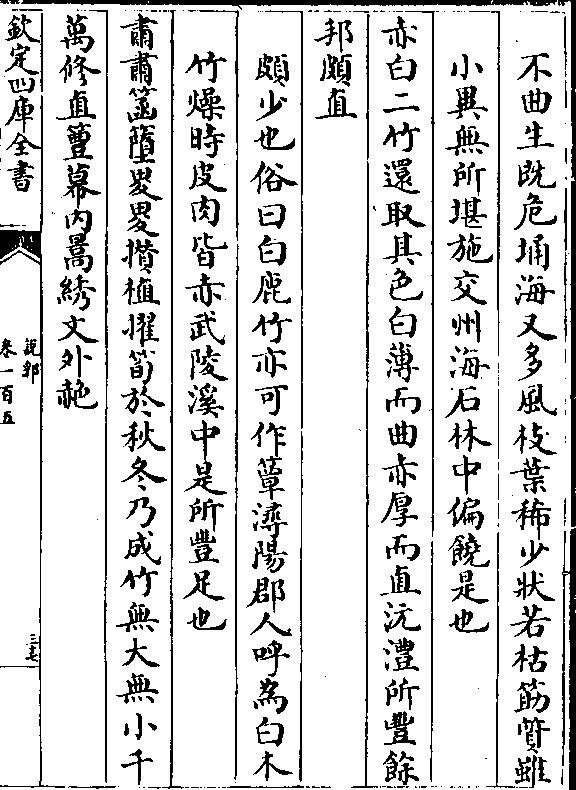 不曲生既危埇海又多風枝葉稀少狀若枯筋質雖
小異無所堪施交州海石林中偏饒是也
赤白二竹還取其色白薄而曲赤厚而直沅澧所豐餘
邦頗直
頗少也俗曰白鹿竹亦可作簟潯陽郡人呼為白木
竹燥時皮肉皆赤武陵溪中是所豐足也
肅肅墮畟畟攢植擢筍於秋冬乃成竹無大無小千
萬修直幕内暠綉文外赩
欽定四庫全書
說郛
卷一百五